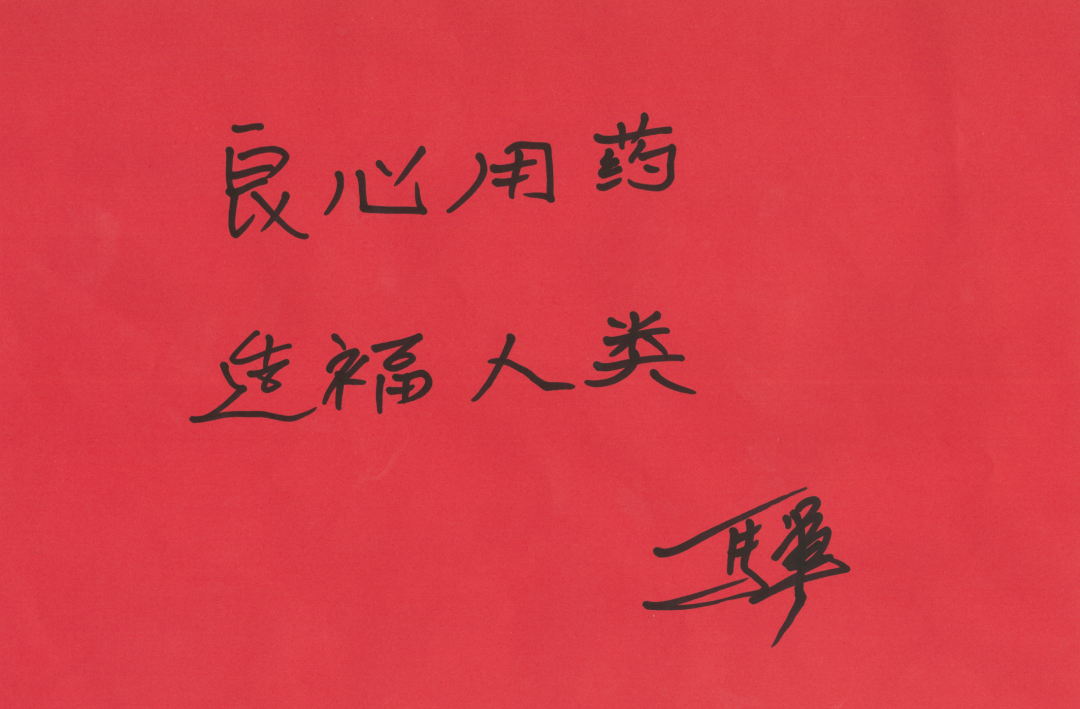 良心用药
造福人类